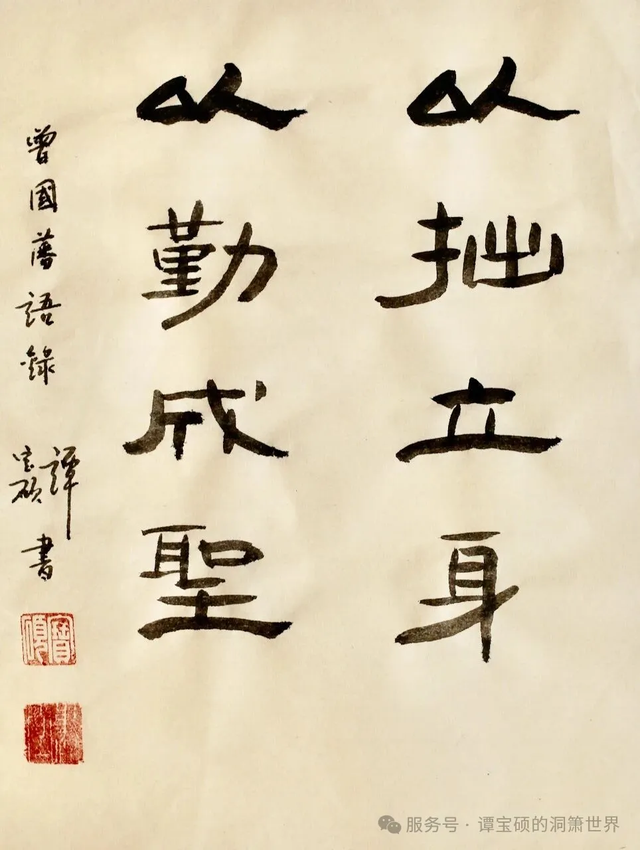 以拙立身
以勤成聖
曾國藩語錄
譚宝硕書
寶碩
服务号·谭宝硕的洞箫世界